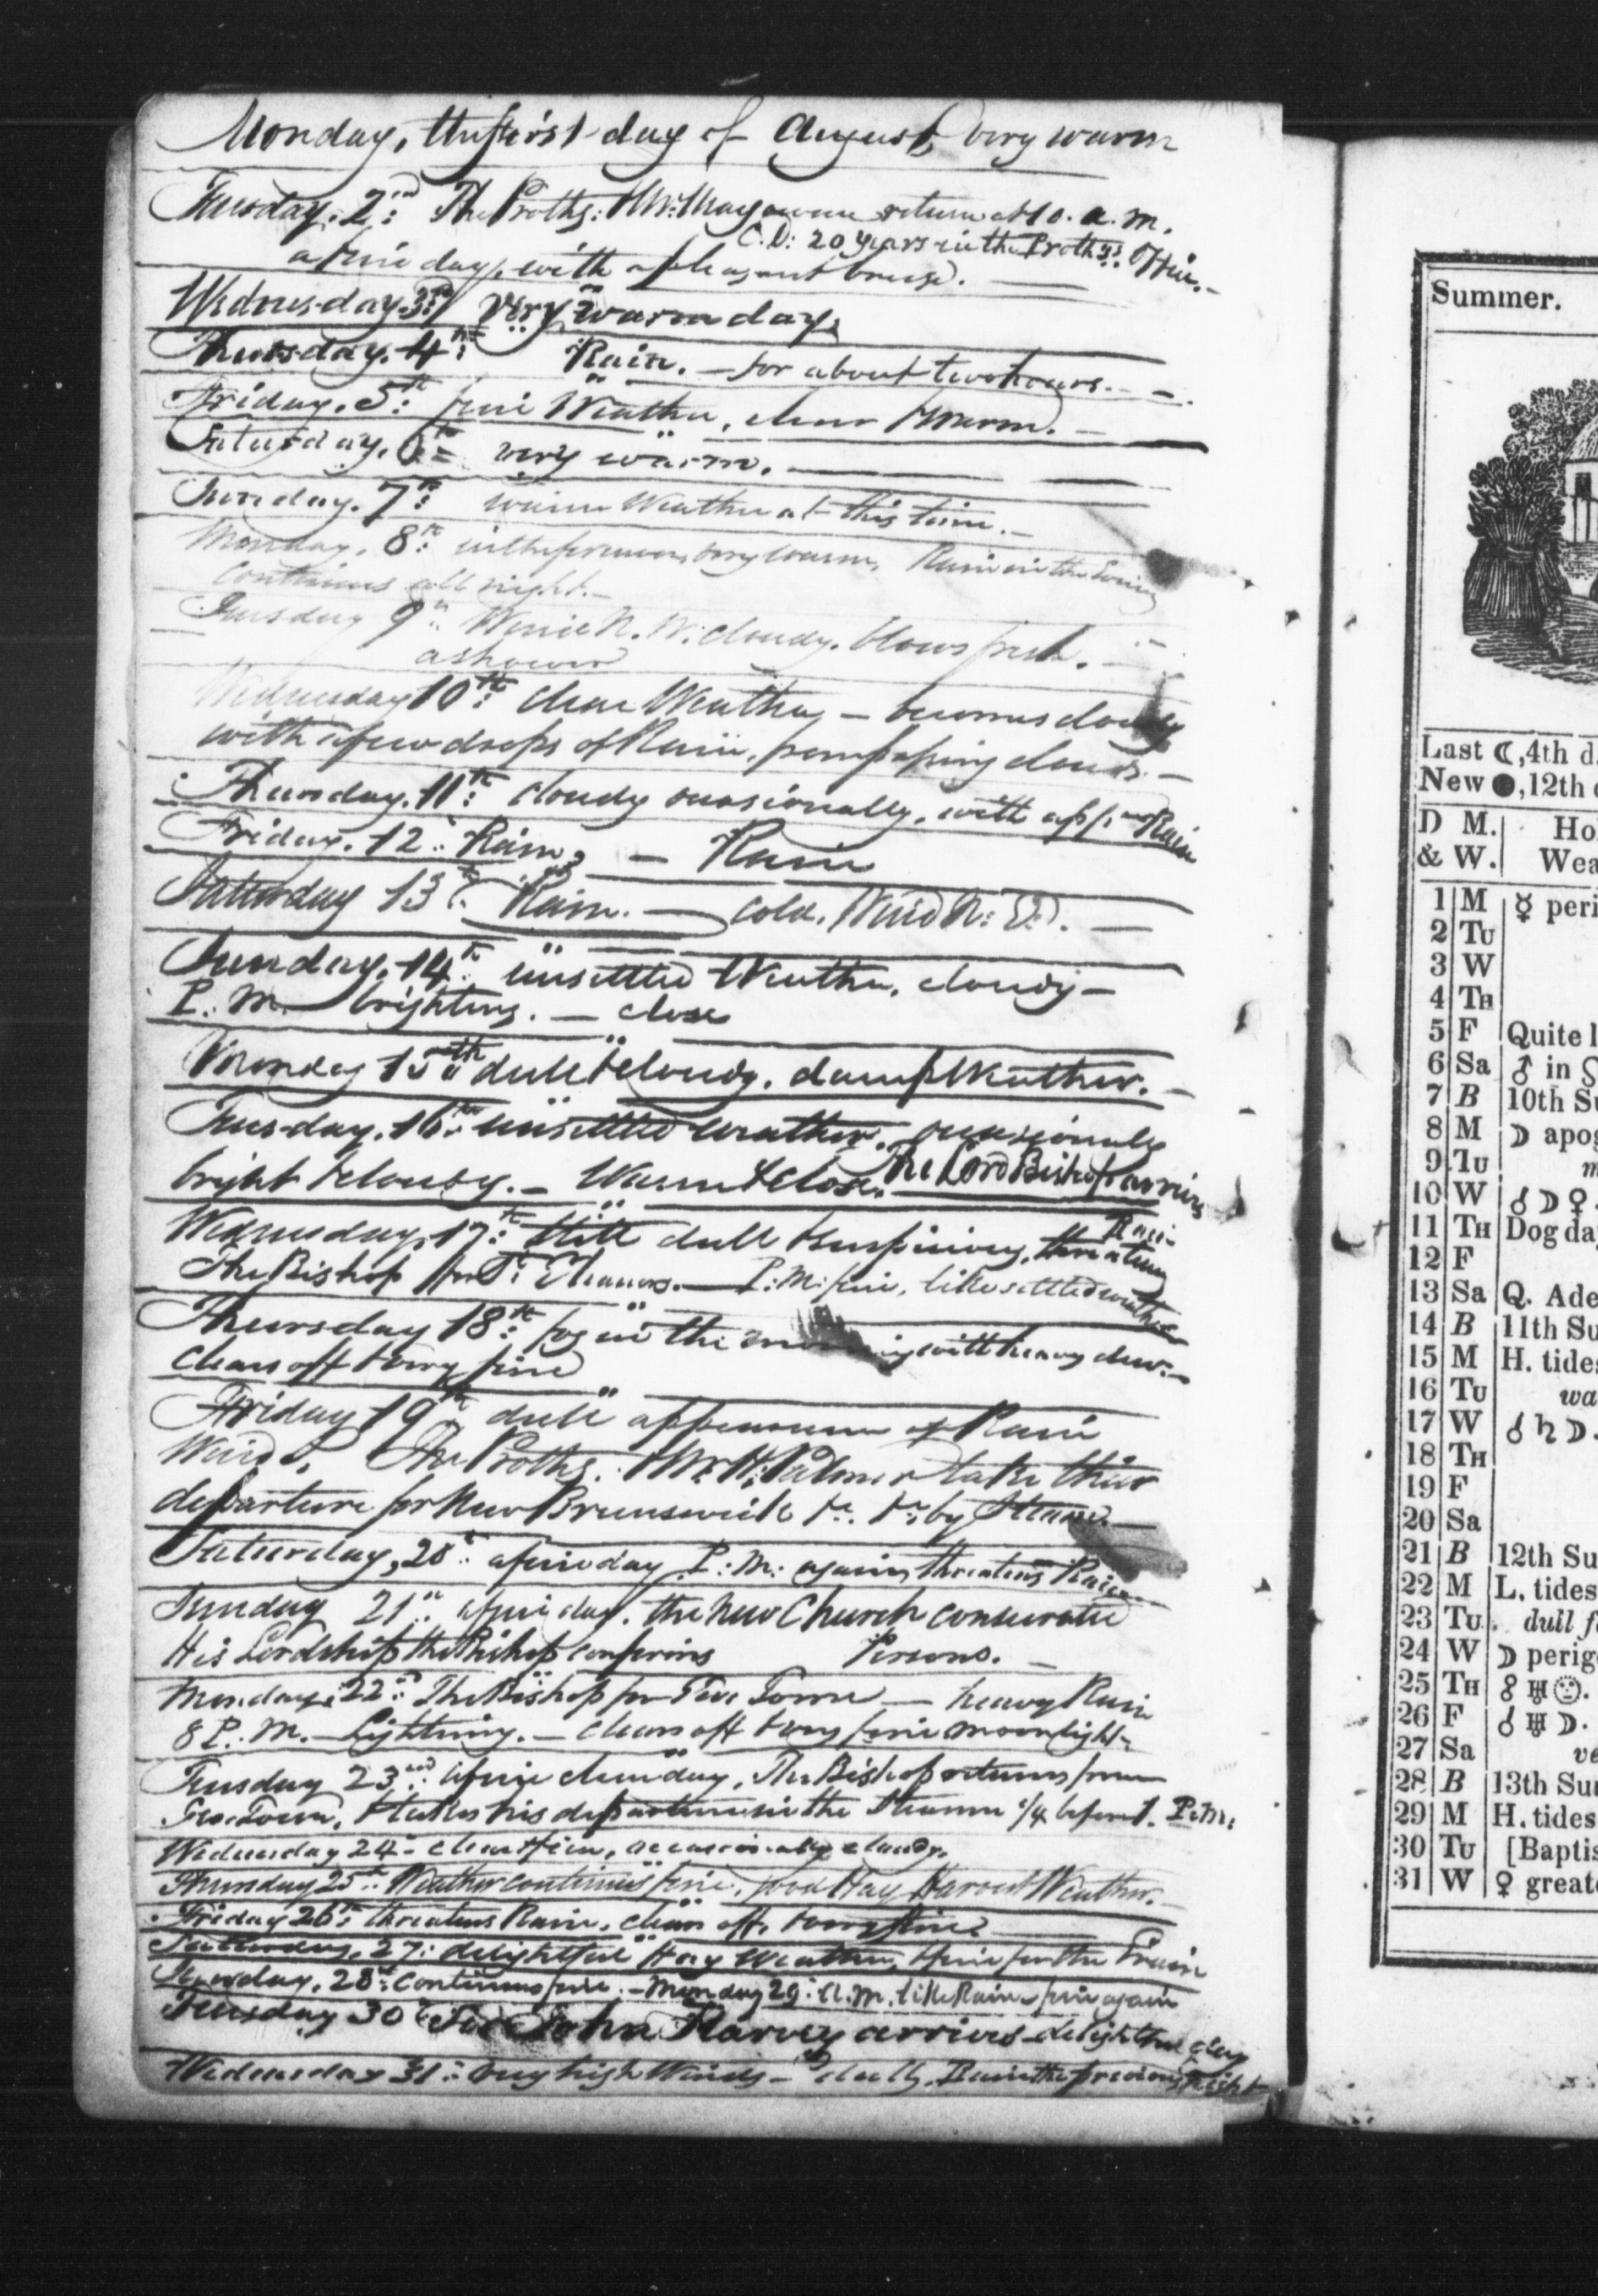 Monday, the first day of August, very warm
Tuesday. 2nd: The Proths: & Mr: Magowan return at 10. a.m.
C.D: 20 years in the Prothys: Office.-
a fine day, with a pleasant breeze.
Wednesday. 3rd very warm day.
Thursday. 4th: Rain. - for about two hours. -
Friday. 5th: fine Weather, clear & warm. -
Saturday. 6th very warm.
Sunday. 7th: warm Weather at this time. -
Monday. 8th: in the forenoon, very warm, Rain in the Evening
Continues all night. -
Tuesday 9th: Wind N. W: cloudy. blows fresh. -
a shower
Wednesday 10th: clear Weather, - becomes cloudy
with a few drops of Rain, from passing clouds. -
Thursday. 11th: cloudy occasionally, with app: Rain
Friday. 12: Rain, - Rain
Saturday 13th: Rain. - cold. Wind N: E.
Sunday. 14th: unsettled Weather, cloudy -
P. M. brightens. - close
Monday 15th dull & cloudy. damp Weather. -
Tuesday. 16th: unsettled weather. occasionally
bright & cloudy. - Warm & close. The Lord Bishop arrives
Wednesday, 17th: Still dull & suspicious, threatens
Rain
The Bishop for St: Eleanors. - P: M: fine, like settled weather
Thursday 18th: fog in the morning with heavy dew. -
clears off & very fine
Friday 19th dull appearance of Rain
Wind S. The Proths: & Mr: H: Palmer take their
departure for New Brunswick &c. &c. by Steamer. -
Saturday, 20th: a fine day P: M: again threatens Rain
Sunday 21st: a fine day. the new Church consecrated
His Lordship the Bishop confirms Persons. -
Monday. 22nd: The Bishop for Geo: Town - heavy Rain
8 P. M. Lightning. - clears off & very fine moonlight -
Tuesday 23rd: a fine clear day, The Bishop returns from
Geo. Town, & takes his departure in the Steamer 1/4 before 1. P.M:
Wednesday 24th clear & fine, occasionally cloudy.
Thursday 25th: Weather continues fine, good Hay Harvest Weather.
Friday 26th: threatens Rain, clears off, & very fine
Saturday. 27: delightful Hay Weather, & fine for the Grain
Sunday. 28th: Continues fine. - Monday 29: A.M. like Rain - fine again
Tuesday 30th Sir John Harvey arrives delightful day
Wednesday 31: very high Winds - dull, Rain the preceding Night
Summer.
Last ☾,4th d.
New ●,12th
D M.
& W.
Ho
Wea
1 M ☿ peri
2 Tu
3 W
4 Th
5 F Quite l
6 Sa ♂ in
7 B 10th Su
8 M ☽ apog
9 Tu m
10 W ☌ ☽ ♀
11 Th Dog da
12 F
13 Sa Q. Ade
14 B 11th Su
15 M H. tides
16 Tu wa
17 W ☌ ♄ ☽
18 Th
19 F
20 Sa
21 B 12th Su
22 M L. tides
23 Tu dull f
24 W ☽ perig
25 Th ☍ ♅ ☉.
26 F ☌ ♅ ☽.
27 Sa ve
28 B 13th Sun
29 M H. tides
30 Tu [Baptis
31 W ♀ greate